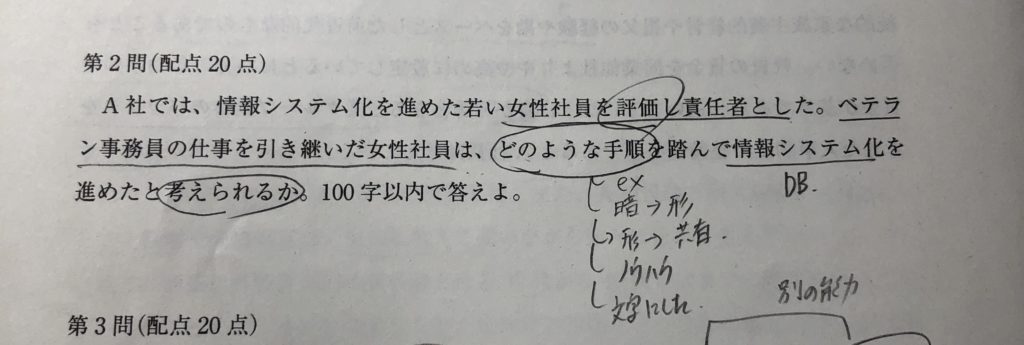 第２問(配点 20 点)
Ａ社では、情報システム化を進めた若い女性社員を評価し責任者とした。ベテラ
ン事務員の仕事を引き継いだ女性社員は、どのような手順を踏んで情報システム化を
進めたと考えられるか。100 字以内で答えよ。
ex
DB.
暗→形
形→共有.
ノウハウ
別の能力
文字にした.
第３問(配点 20 点)